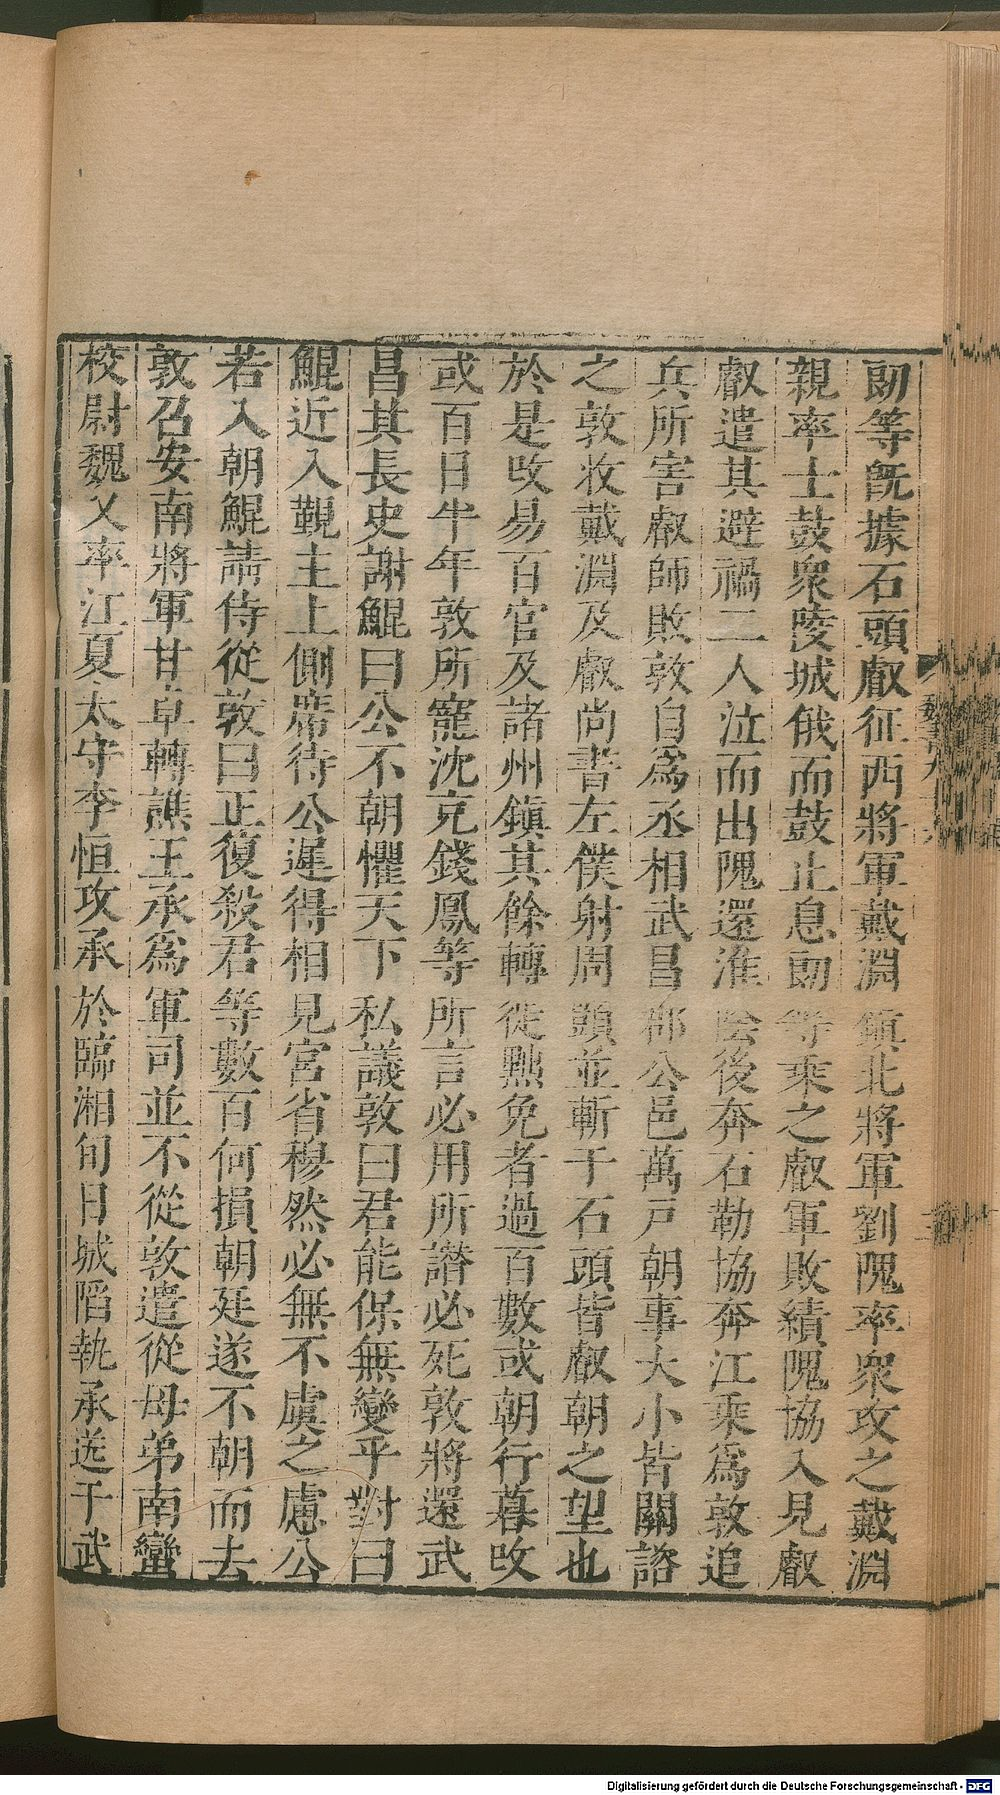 刕等旣據石頭叡征西將軍戴淵鎮北將軍劉隗率衆攻之戴淵
親率士鼓衆陵城俄而鼓止息刕等乘之叡軍敗績隗協入見叡
叡遣其避禍二人泣而出隗還淮陰後奔石勒協奔江乘爲敦追
兵所害叡師敗敦自爲丞相武昌郡公邑萬戸朝事大小皆關諮
之敦收戴淵及叡尚書左僕射周顗並斬于石頭皆叡朝之望也
於是改易百官及諸州鎮其餘轉徙黜免者過百數或朝行暮改
或百日半年敦所寵沈充錢鳳等所言必用所譖必死敦將還武
昌其長史謝鯤曰公不朝懼天下私議敦曰君能保無變乎對曰
鯤近入覲主上側席待公遲得相見宮省穆然必無不虞之慮公
若入朝鯤請侍從敦曰正復殺君等數百何損朝廷遂不朝而去
敦召安南將軍甘卓轉譙王承爲軍司並不從敦遣從母弟南蠻
校尉魏乂率江夏太守李恒攻承於臨湘旬日城陷執承送于武
魏書九十六
Digitalisierung gefördert durch die Deutsche Forschungsgemeinschaft - DFG